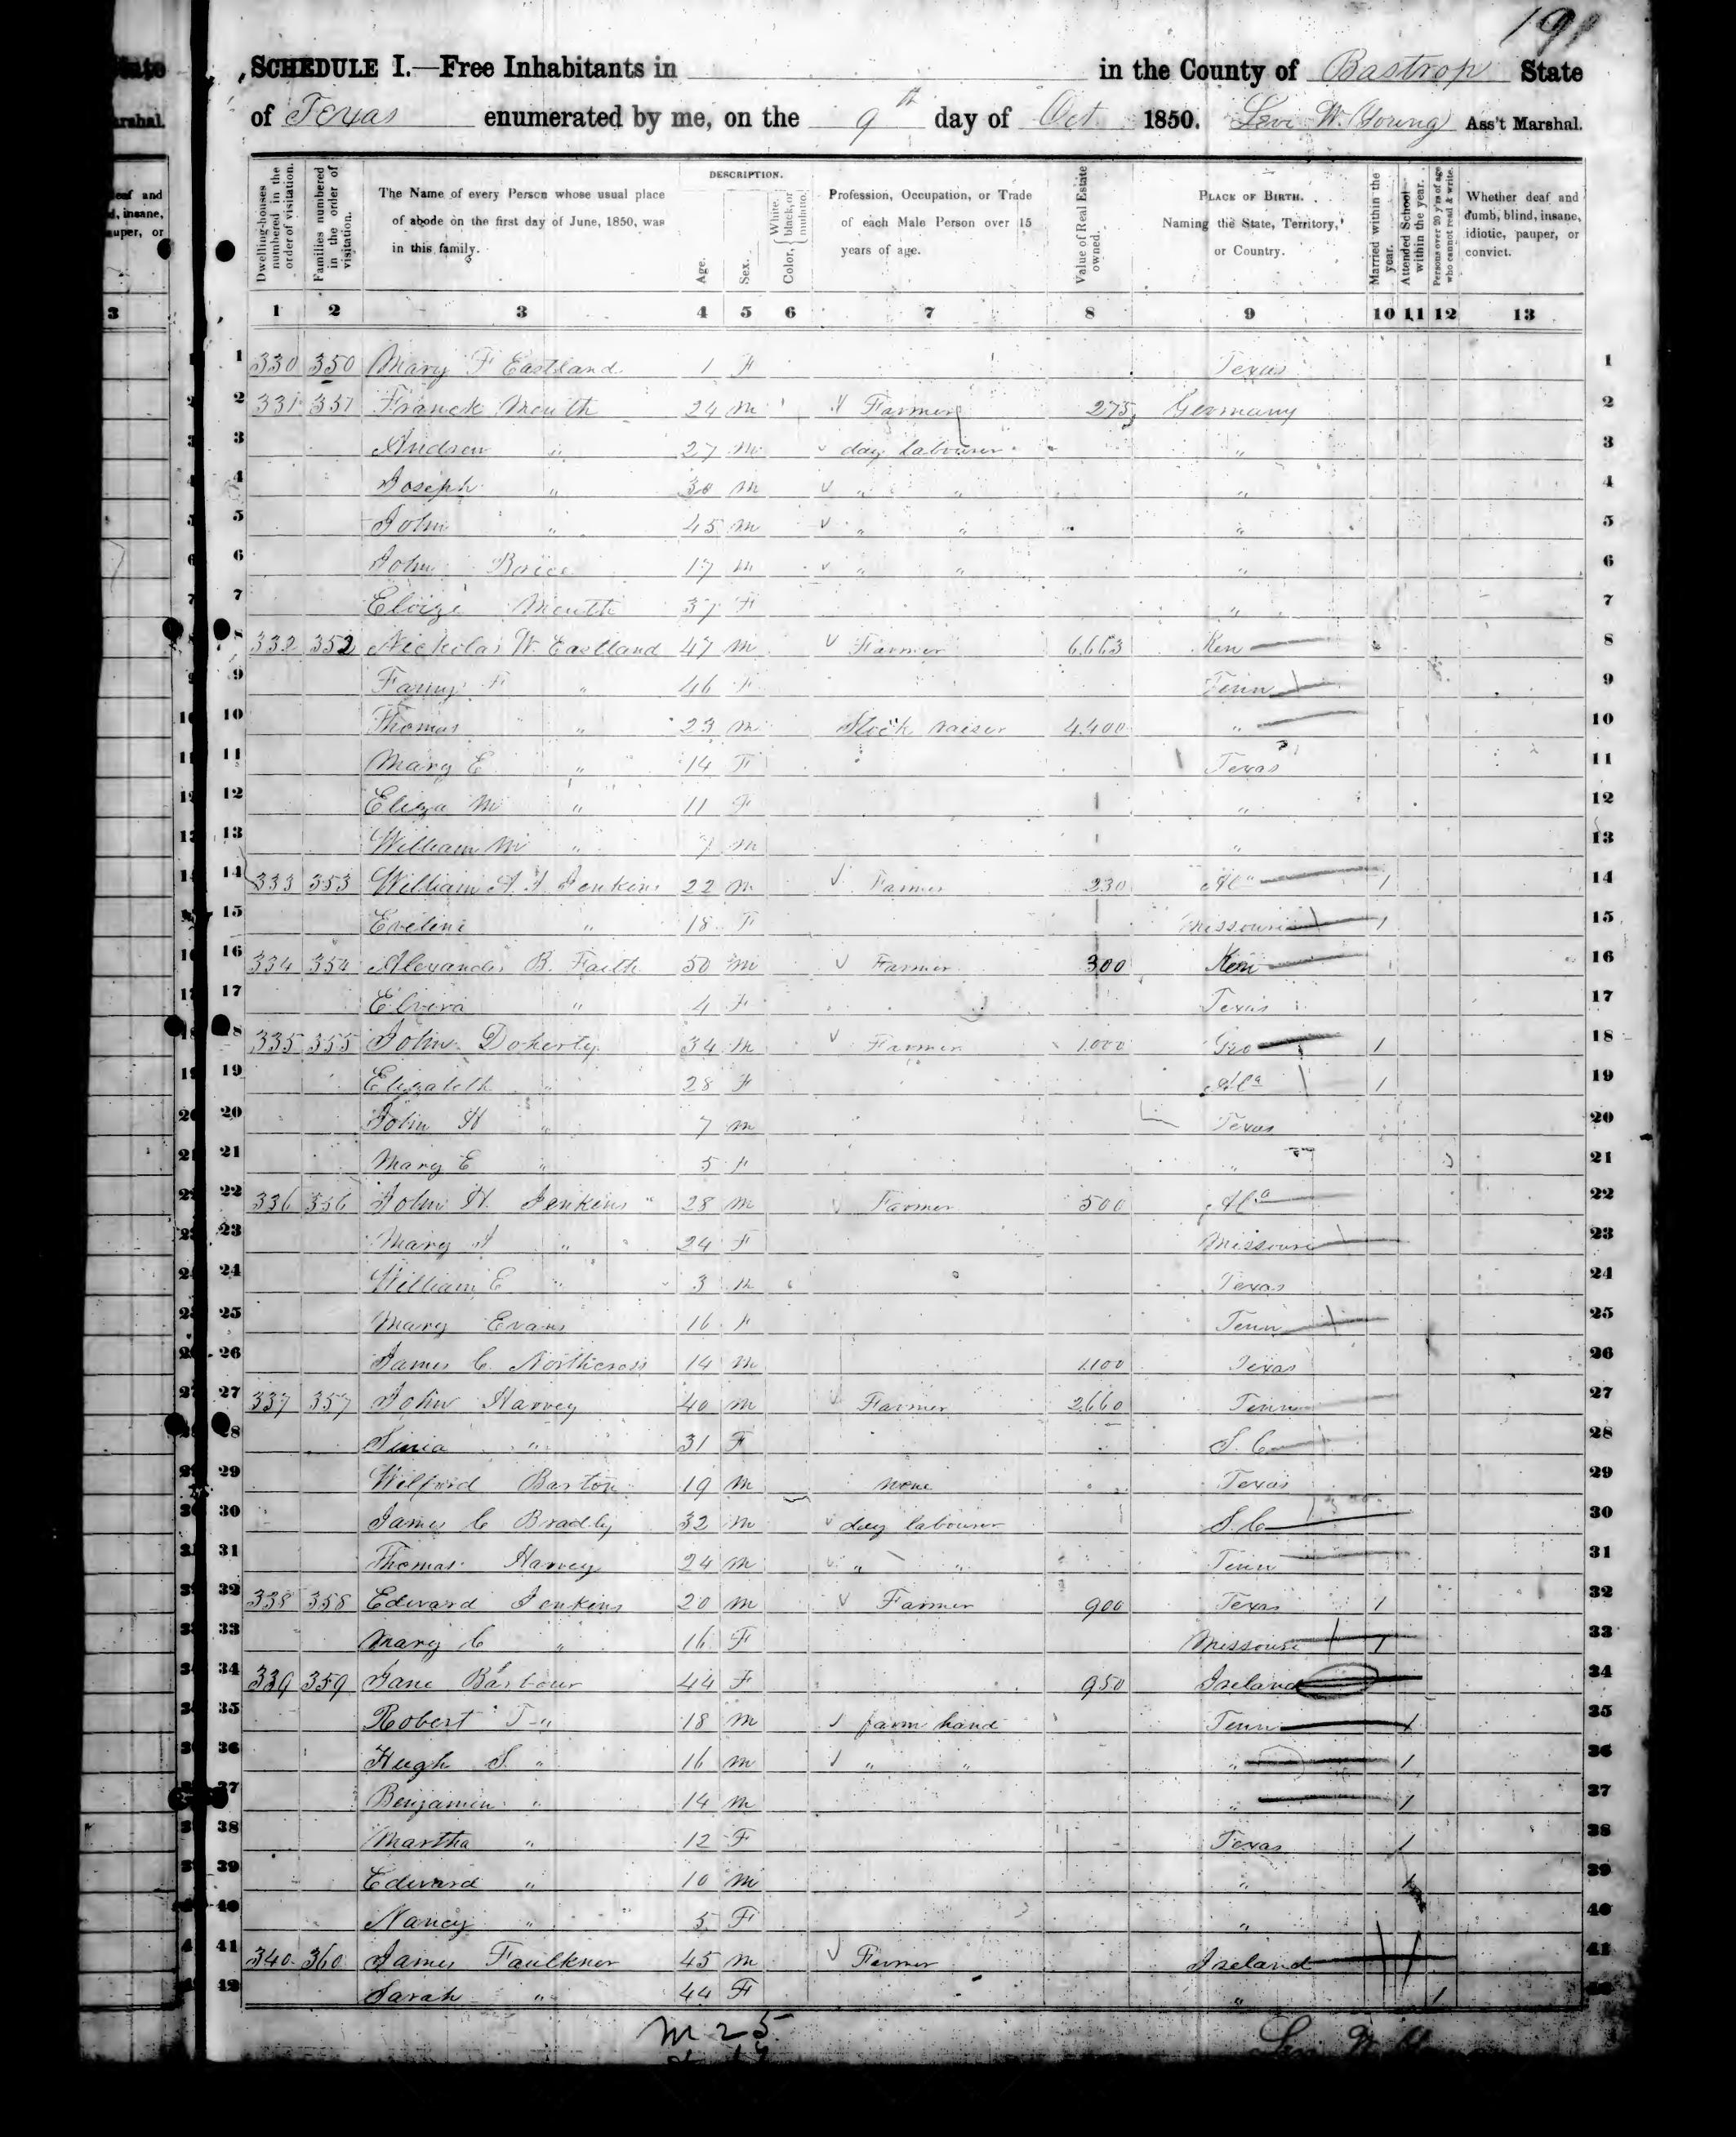 191
SCHEDULE I.—Free Inhabitants in in the County of Bastrop State
of Texas enumerated by me, on the 9th day of Oct 1850. Levi W. Young Ass't Marshal.
Dwelling-houses numbered in the order of visitation.
Families numbered in the order of visitation.
The Name of every Person whose usual place of abode on the first day of June, 1850, was in this family.
DESCRIPTION.
Age.
Sex.
Color, { White, black, or mulatto.
Profession, Occupation, or Trade of each Male Person over 15 years of age.
Value of Real Estate owned.
PLACE OF BIRTH. Naming the State, Territory, or Country.
Married within the year.
Attended School within the year.
Persons over 20 y'rs of age who cannot read & write.
Whether deaf and dumb, blind, insane, idiotic, pauper, or convict.
1 2 3 4 5 6 7 8 9 10 11 12 13
1 330 350 Mary F Eastland 1 F Texas 1
2 331 351 Franck Meuth 24 M Farmer 275 Germany 2
3 Andrew " 27 M day labourer " 3
4 Joseph " 30 M " " " 4
5 John " 45 M " " " 5
6 John 17 M " " " 6
7 Eloize Meuth 37 F " 7
8 332 352 Nickolas W. Eastland 47 M Farmer 6.663 Ken 8
9 Fanny F " 46 F Tenn 9
10 Thomas " 23 M Stock raiser 4.400 " 10
11 Mary E " 14 F Texas 11
12 Eliza M " 11 F " 12
13 William M " 7 M " 13
14 333 353 William A. J. Jenkins 22 M Farmer 230 Ala 1 14
15 Eveline " 18 F Missouri 1 15
16 334 354 Alexander B. Faith 50 M Farmer 300 Ken 16
17 Elvira " 4 F Texas 17
18 335 355 John Doherty 34 M Farmer 1.000 Geo 1 18
19 Elizabeth " 28 F Ala 1 19
20 John H " 7 M Texas 20
21 Mary E " 5 F " 21
22 336 356 John H. Jenkins 28 M Farmer 500 Ala 22
23 Mary A " 24 F Missouri 23
24 William E " 3 M Texas 24
25 Mary Evans 16 F Tenn 25
26 James C. Northcross 14 M 1.100 Texas 26
27 337 357 John Harvey 40 M Farmer 2.660 Tenn 27
28 Sinia " 31 F S. C 28
29 Wilford Barton 19 M none Texas 29
30 James C Bradly 32 M day labourer S. C 30
31 Thomas Harvey 24 M " " Tenn 31
32 338 358 Edward Jenkins 20 M Farmer 900 Texas 1 32
33 Mary C " 16 F Missouri 1 33
34 339 359 Jane Barbour 44 F 950 Ireland 34
35 Robert T " 18 M farm hand Tenn 1 35
36 Hugh S. " 16 M " " " 1 36
37 Benjamin " 14 M " 1 37
38 Martha " 12 F Texas 1 38
39 Edward " 10 M " 1 39
40 Nancy " 5 F " 40
41 340 360 James Faulkner 45 M Farmer Ireland 41
42 Sarah " 44 F " 1
M 25